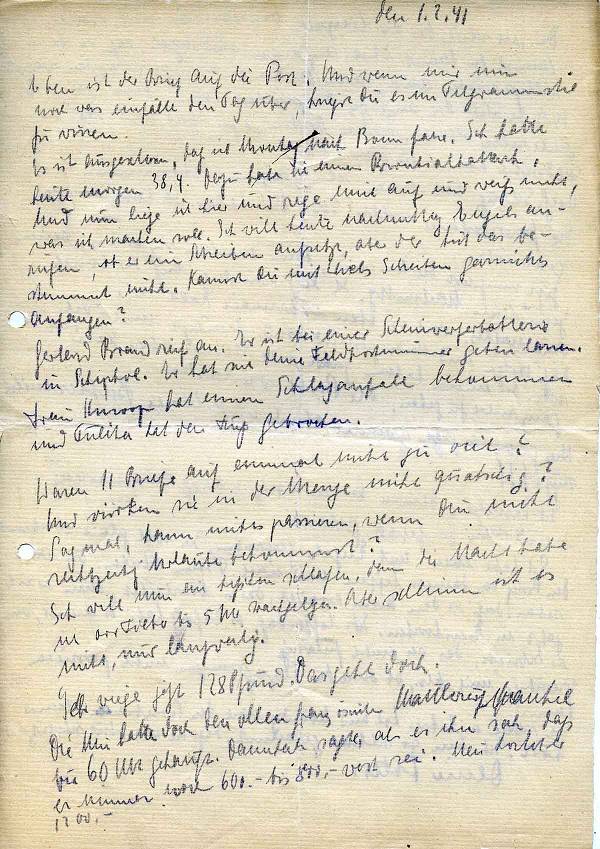 den 1.2.41
Eben ist der Brief auf die Post. Und wenn mir nun
noch was einfällt den Tag über, kriegst Du es im Telegrammstil
zu wissen.
Es ist ausgeschlossen, dass ich Montag nach Bonn fahre. Ich hatte
heute morgen 38,4. Dazu habe ich einen
Und nun liege ich hier und rege mich auf und weiss nicht,
was ich machen soll. Ich will heute nachmittag Engels an-
rufen, ob er ein Schreiben aufsetzt, aber der tut das be-
stimmt nicht. Kannst Du mit Schreiben garnichts
anfangen?
Brand rief an. Er ist bei einer Scheinwerferbatterie
in Schiphol. Er hat sich Deine Feldpostnummer geben lassen.
Frau hat einen Schlaganfall bekommen
und hat den gebrochen.
Waren 11 Briefe auf einmal nicht zu viel?
Und wirken sie in der Menge nicht quatschig?
Sag mal, kann nichts passieren, wenn Du nicht
rechtzeitig Urlaub bekommst?
Ich will nun ein bisschen schlafen, denn die Nacht habe
ich bis 5 Uhr wachgelegen. Aber schlimm ist es
nicht, nur langweilig.
Ich wiege jetzt 128 Pfund. Das geht doch.
Die hatte doch den ollen
für 60 Mk gekauft. sagte, als er ihn sah, dass
er immer noch 600.- bis 800.- wert sei. Neu kostet er
1200.-